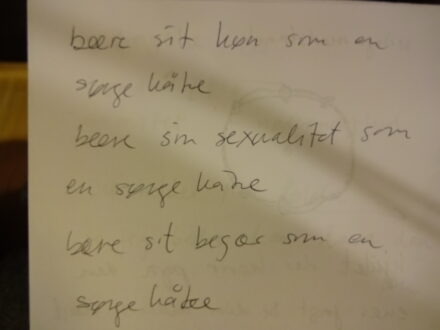 bære sit køn som en
sørge kåbe
bære sin sexualitet som
en sørge kåbe
bære sit begær som en
sørge kåbe